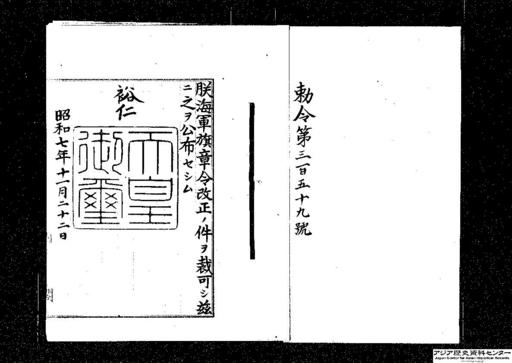 勅令第三百五十九號
朕海軍旗章令改正ノ件ヲ裁可シ茲
ニ之ヲ公布セシム
裕仁
天皇
御璽
昭和七年十一月二十二日
アジア歴史資料センター
Japan Center for Asian Historical Records